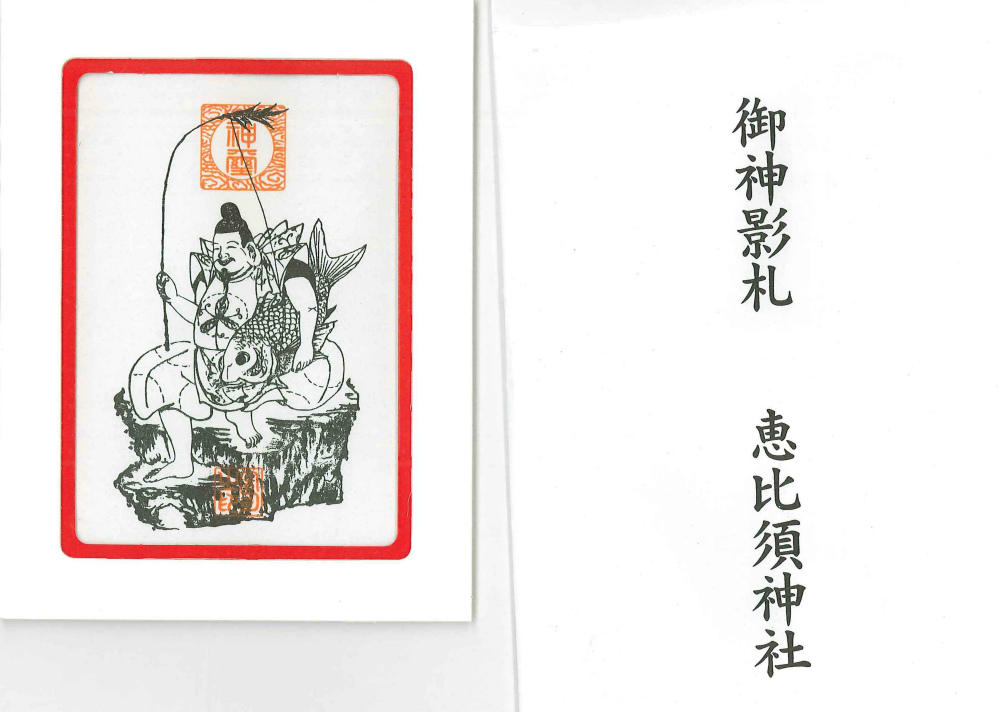 御神影札　恵比須神社
神璽